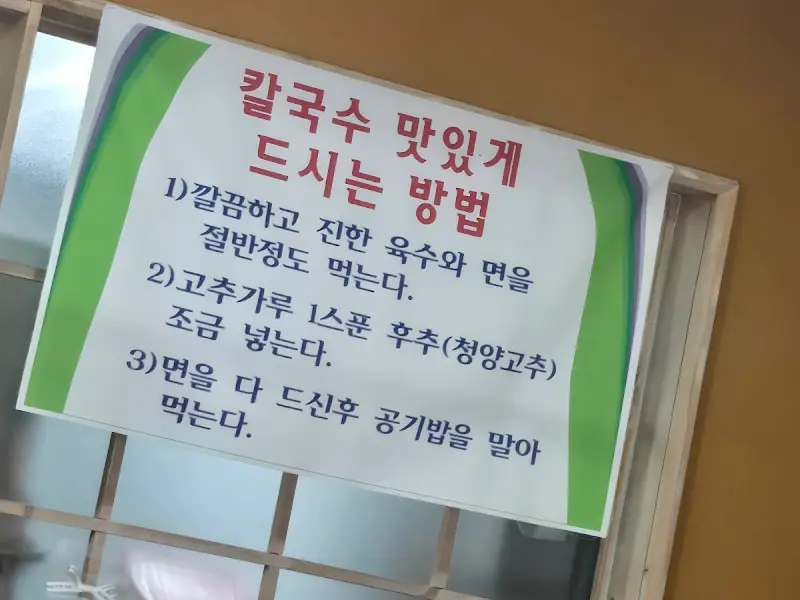 칼국수 맛있게
드시는 방법
1)깔끔하고 진한 육수와 면을
절반정도 먹는다.
2)고추가루 1스푼 후추(청양고추)
조금 넣는다.
3)면을 다 드신후 공기밥을 말아
먹는다.